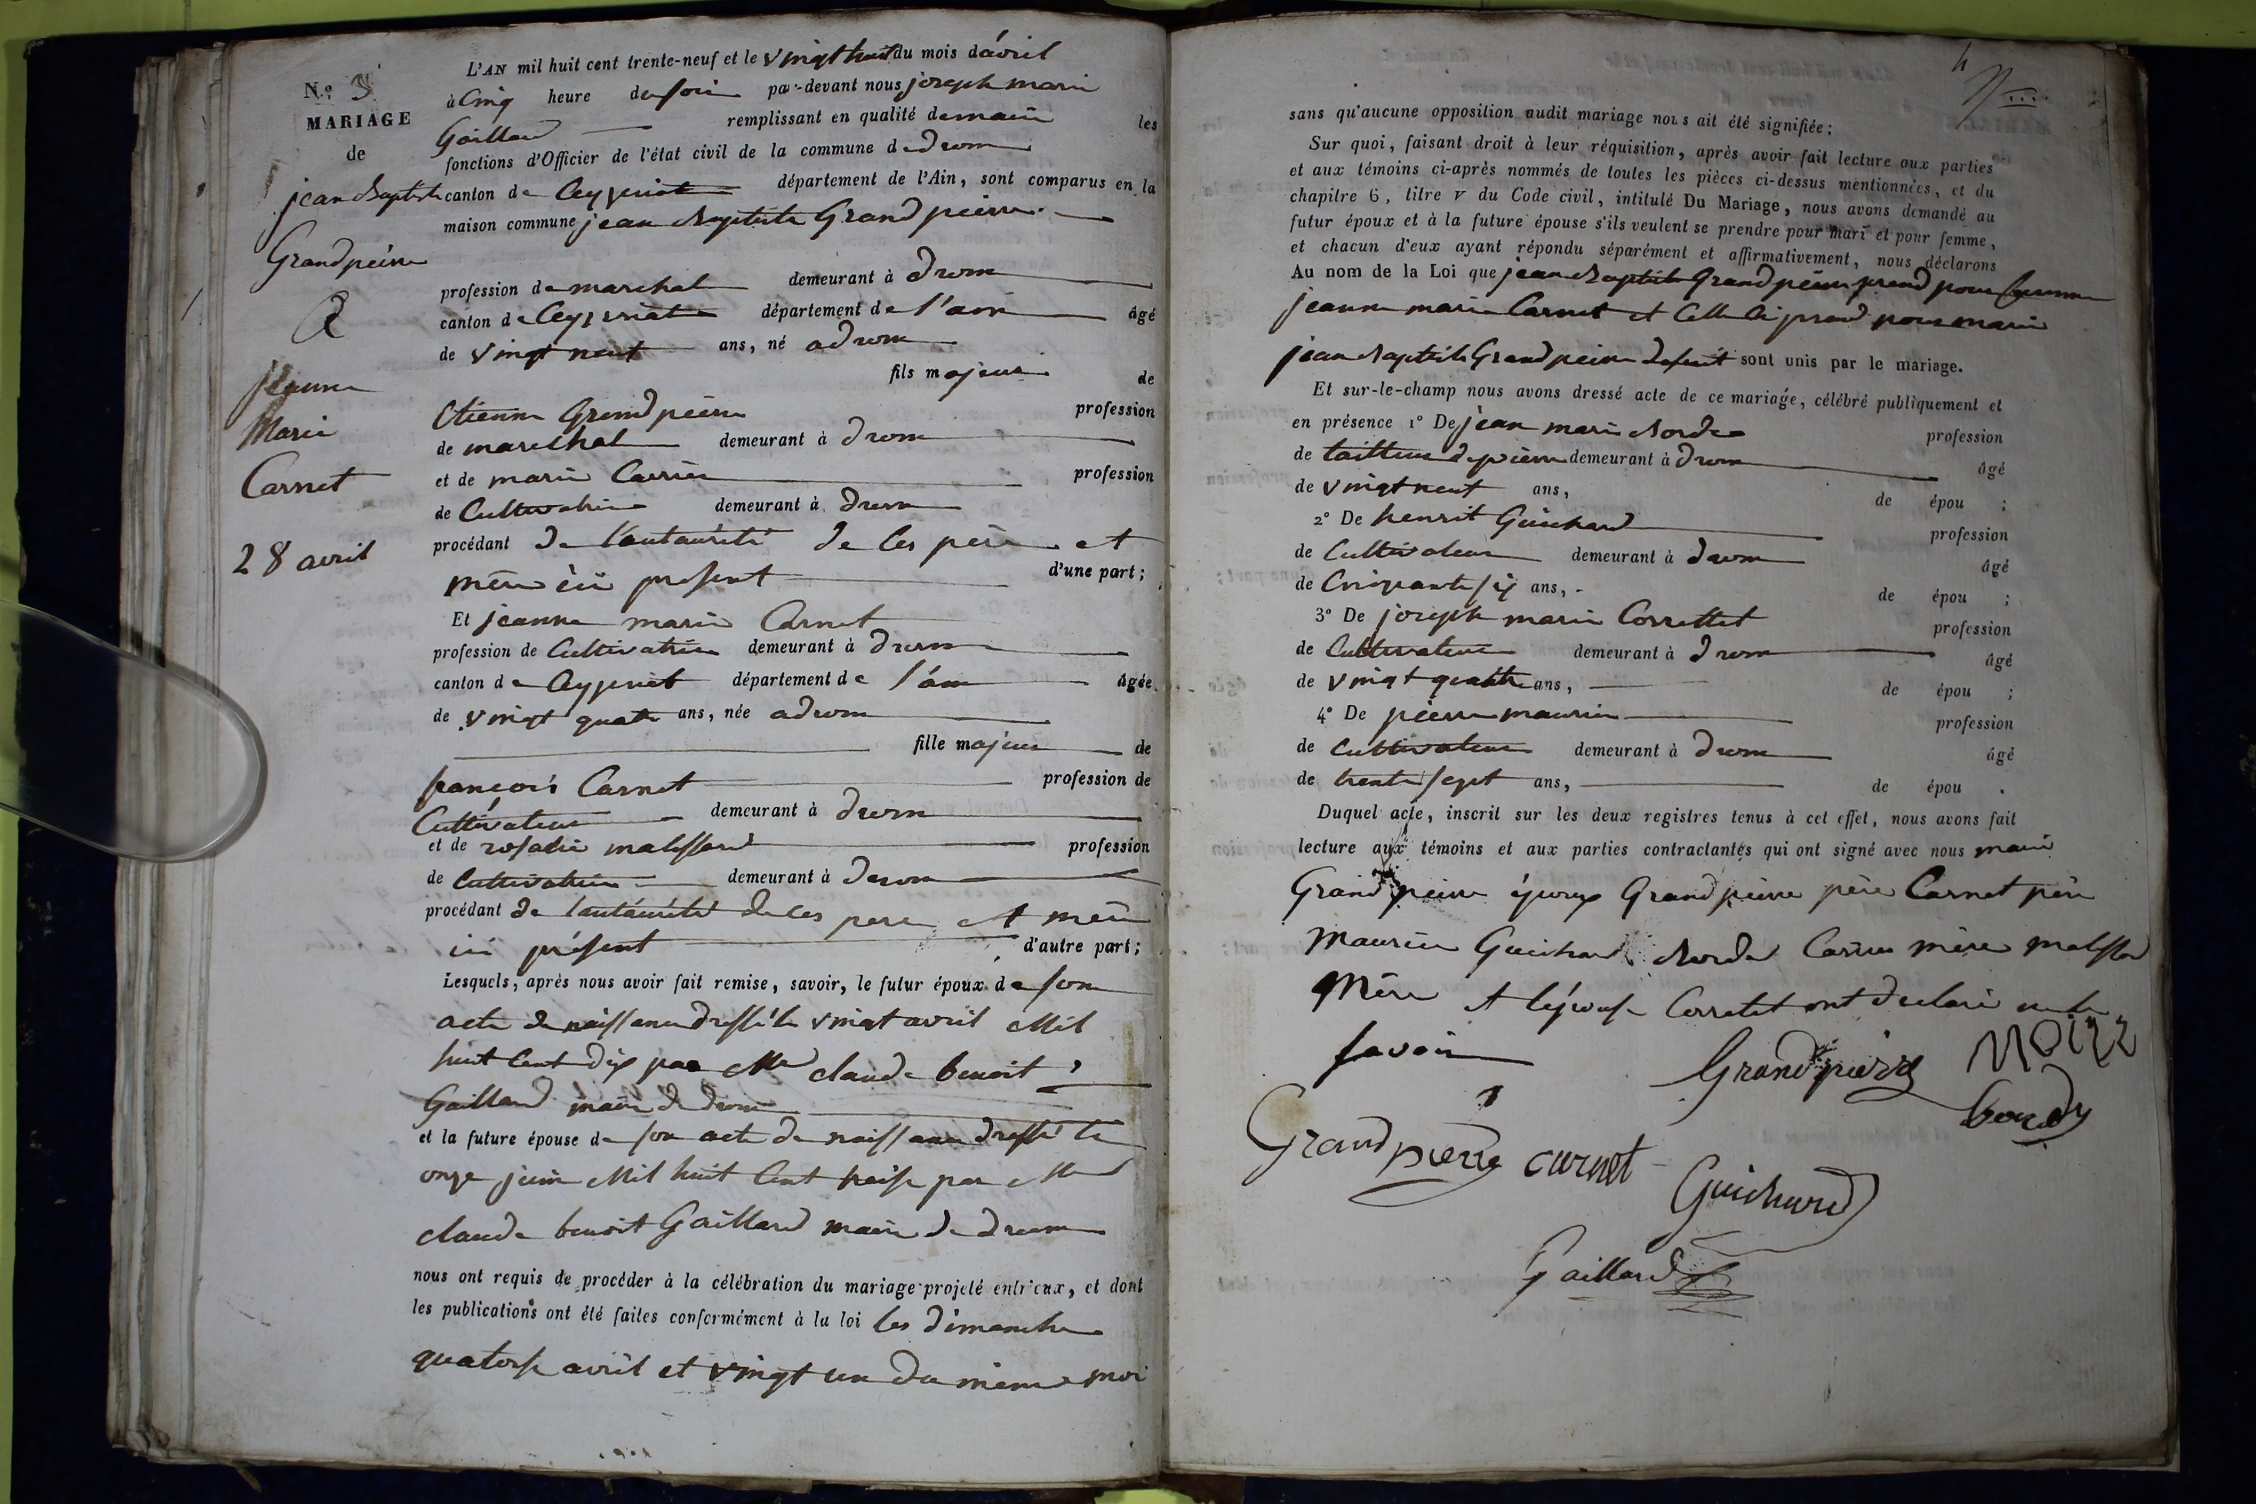 N.º 3
MARIAGE
de
jean Baptiste
Grandpierre
&
jeanne
Marie
Carnet
28 avril
L'AN mil huit cent trente-neuf et le vingt huit du mois d'avril
à Cinq heure du soir par-devant nous joseph marie
Gaillard remplissant en qualité de maire les
fonctions d'Officier de l'état civil de la commune de drom
canton de Ceyzeriat département de l'Ain, sont comparus en la
maison commune jean Baptiste Grand pierre
profession de marchal demeurant à drom
canton de Ceyzeriat département de l'ain âgé
de vingt neuf ans, né a drom
fils majeur de
Etienne Grand pierre profession
de marechal demeurant à drom
et de marie Carrier profession
de Cultivatrice demeurant à drom
procédant de l'autaurité de ces père et
mère ici present d'une part;
Et jeanne marie Carnet
profession de Cultivatrice demeurant à drom
canton de Ceyzeriat département de l'ain âgée
de vingt quatre ans, née a drom
fille majeur de
françois Carnet profession de
Cultivateur demeurant à drom
et de rosalie malessard profession
de Cultivatrice demeurant à drom
procédant de l'autaurité de ces pere et mère
ici présent d'autre part;
Lesquels, après nous avoir fait remise, savoir, le futur époux de son
acte de naissance dressé le vingt avril Mil
huit Cent dix par Me claude benoit
Gaillard maire de drom
et la future épouse de son acte de naissance dressé le
onze juin Mil huit Cent treise par Me
claude benoit Gaillard maire de drom
nous ont requis de procéder à la célébration du mariage projeté entr'eux, et dont
les publications ont été faites conformément à la loi les dimanche
quatorse avril et vingt un du même moi
4
sans qu'aucune opposition audit mariage nous ait été signifiée;
Sur quoi, faisant droit à leur réquisition, après avoir fait lecture aux parties
et aux témoins ci-après nommés de toutes les pièces ci-dessus mentionnées, et du
chapitre 6, titre V du Code civil, intitulé Du Mariage, nous avons demandé au
futur époux et à la future épouse s'ils veulent se prendre pour mari et pour femme,
et chacun d'eux ayant répondu séparément et affirmativement, nous déclarons
Au nom de la Loi que jean Baptiste Grand pierre prend pour femme
jeanne marie Carnet et Celle Ci prend pour marie
jean Baptiste Grand pierre sont unis par le mariage.
Et sur-le-champ nous avons dressé acte de ce mariage, célébré publiquement et
en présence 1º De jean marie profession
de tailleur de pierre demeurant à drom âgé
de vingt neuf ans, de épou ;
2º De henrit Guichard profession
de Cultivateur demeurant à drom âgé
de Cinquante six ans, de épou ;
3º De joseph marie Correttet profession
de Cultivateur demeurant à drom âgé
de vingt quatre ans, de épou ;
4º De pierre maurin profession
de Cultivateur demeurant à drom âgé
de trente sept ans, de épou .
Duquel acte, inscrit sur les deux registres tenus à cet effet, nous avons fait
lecture aux témoins et aux parties contractantes qui ont signé avec nous maire
Grand pierre époux Grand pierre père Carnet père
Maurin Guichard Carrier mère
Mère et l'épouse Corretet ont declaré ne le
savoir
Grandpierre
Grandpierre carnet
Guichard
Gaillard